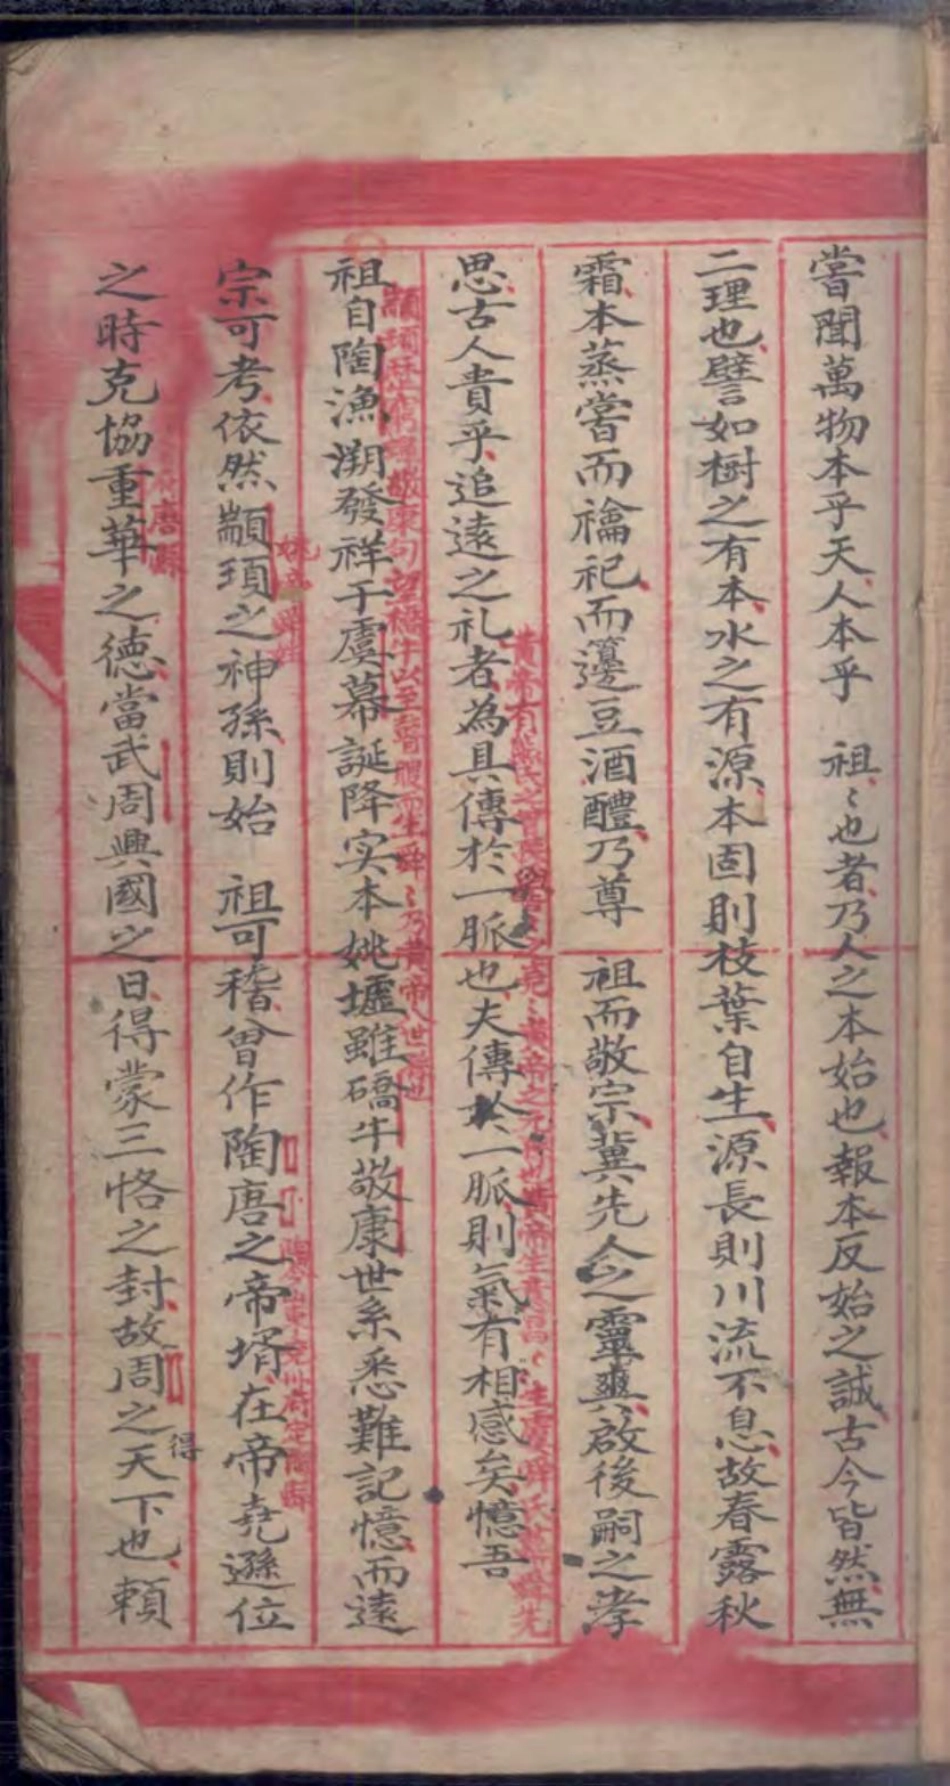 嘗聞萬物本乎天人本乎 祖〻也者乃人之本始也報本反始之誠古今皆然無
二理也譬如樹之有本水之有源本固則枝葉自生源長則川流不息故春露秋
霜本蒸嘗而禴祀而籩豆酒醴乃尊 祖而敬宗冀先人之靈爽啟後嗣之孝
思古人貴乎追遠之礼者為具傳於一脈也夫傳於一脈則氣有相感矣憶吾
祖自陶漁溯發祥于虞幕誕降实本姚墟雖礄牛敬康世系悉難記憶而遠
宗可考依然顓頊之神孫則始 祖可稽曾作陶唐之帝壻在帝堯遜位
之時克協重華之德當武周興國之日得蒙三恪之封故周之得天下也頼